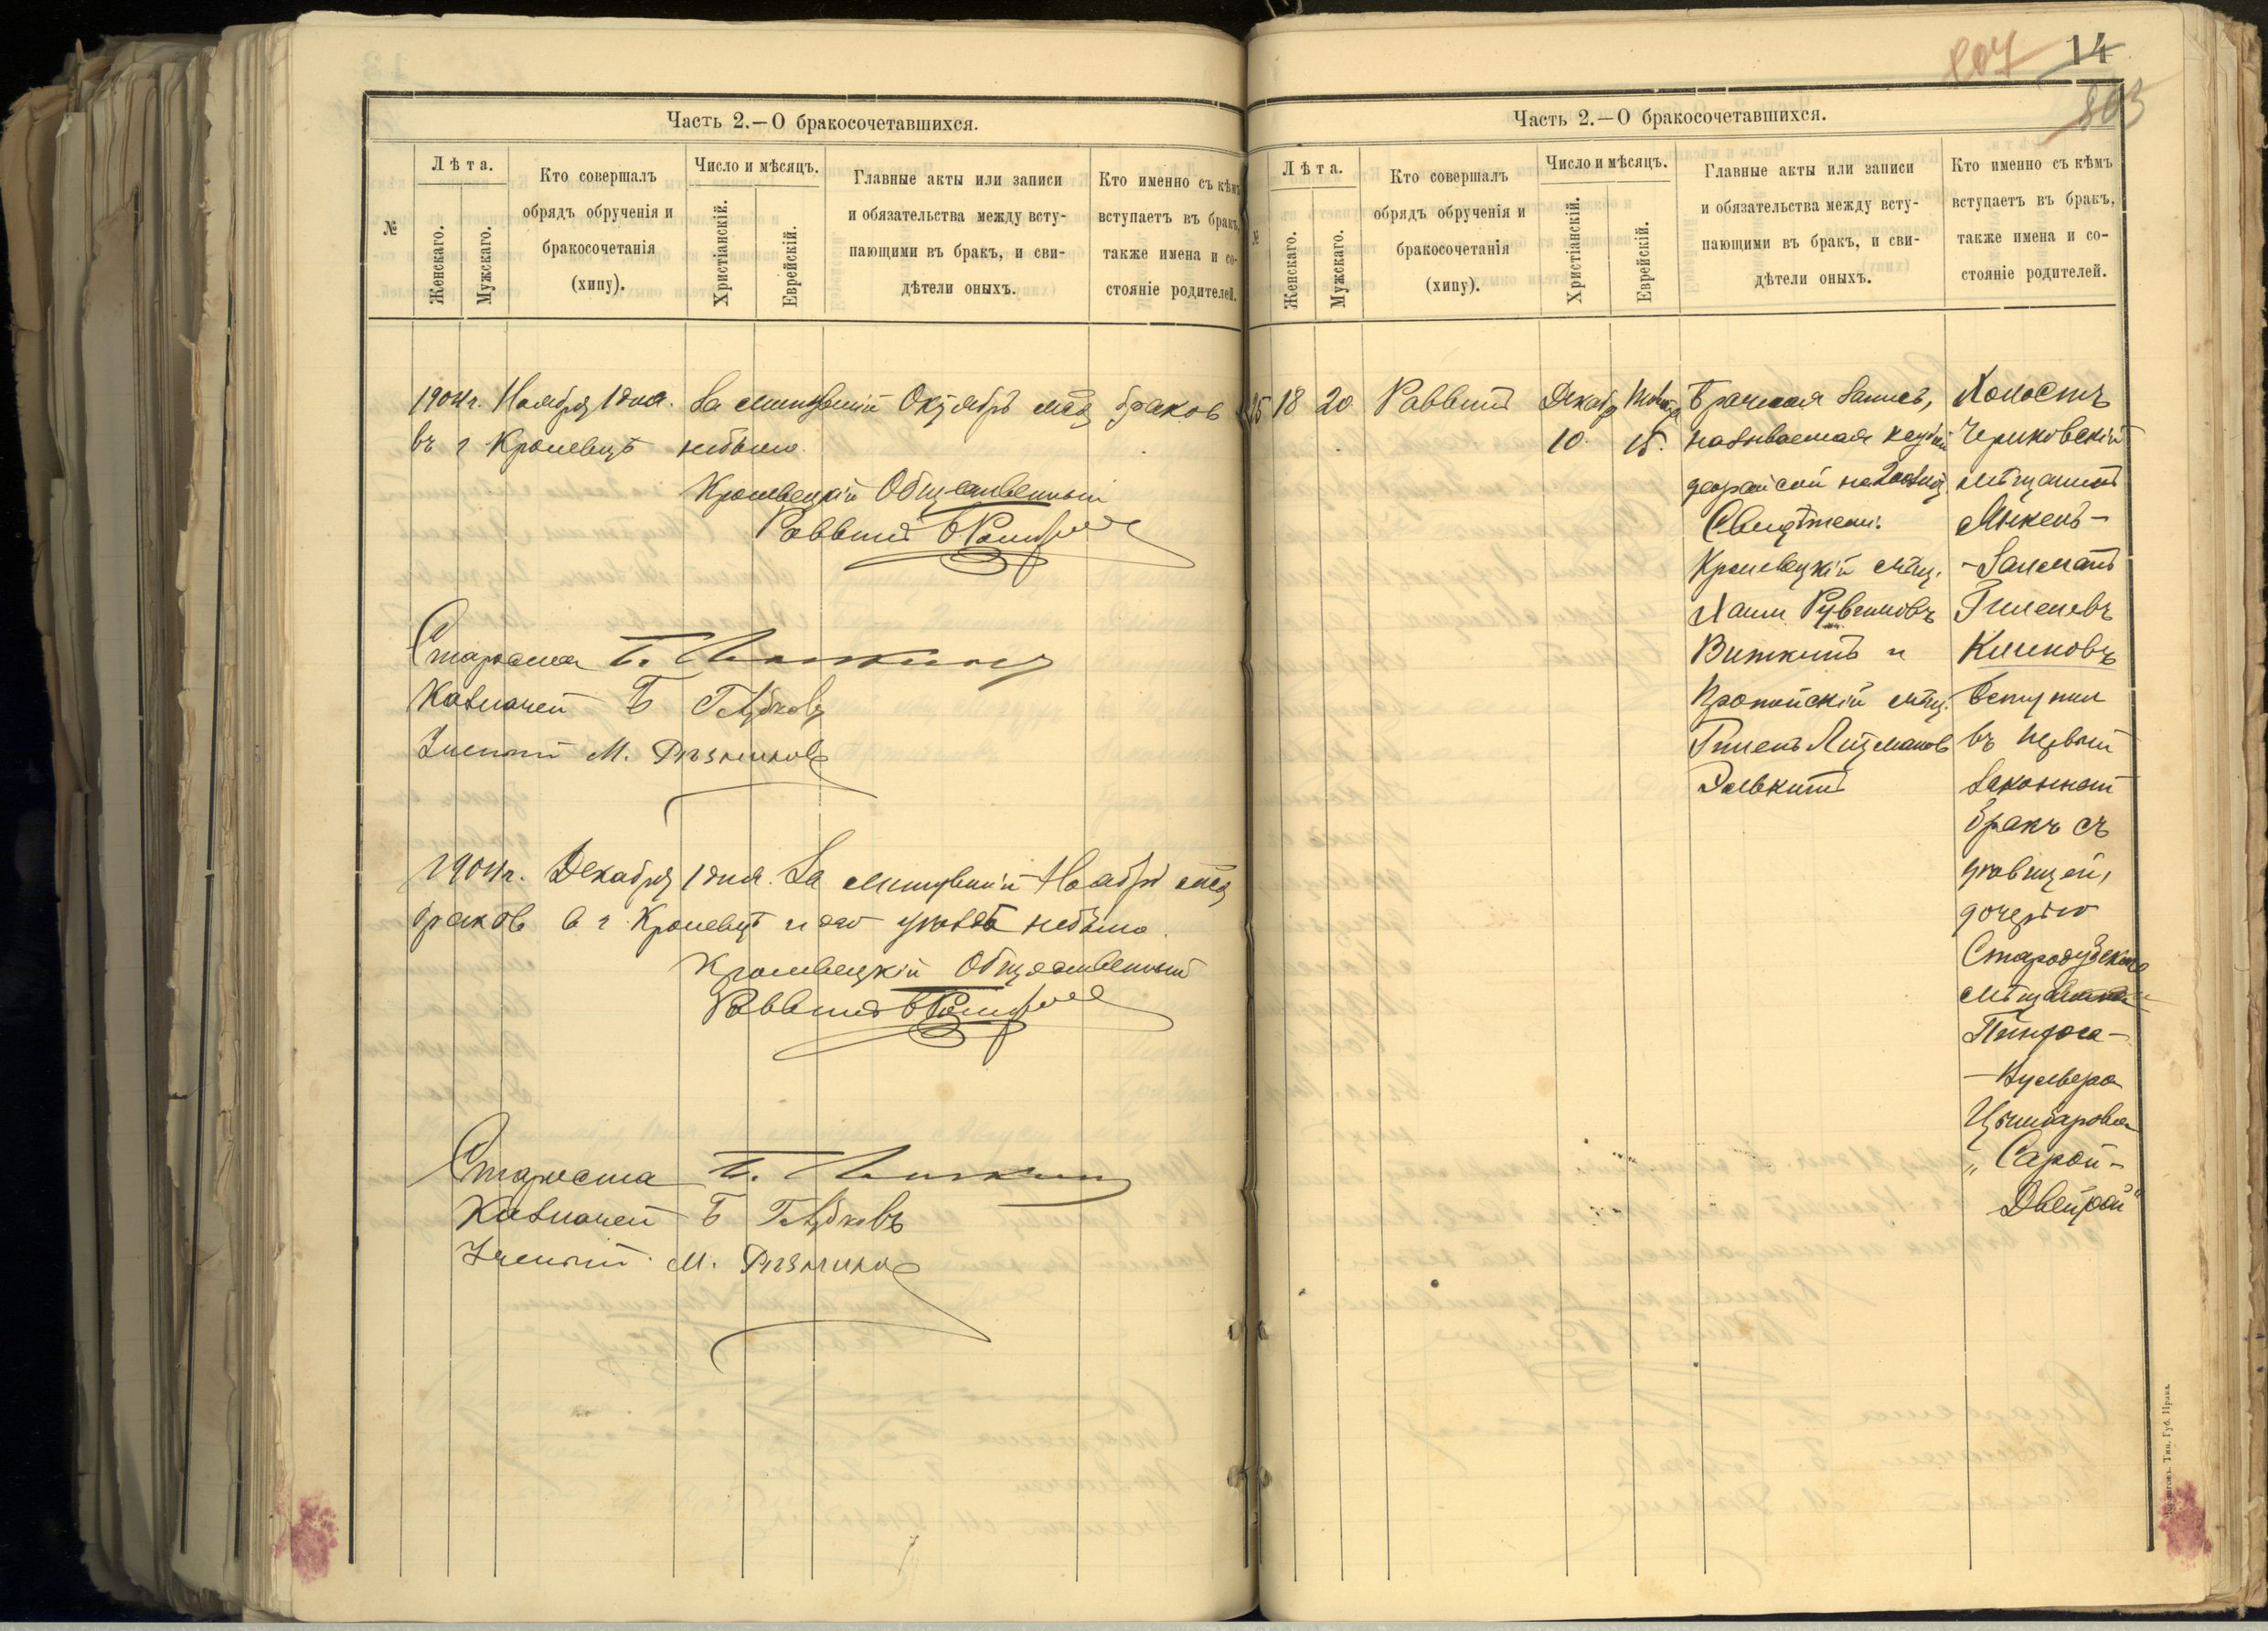 Часть 2.—О бракосочетавшихся.
№
Лѣта.
Женскаго.
Мужскаго.
Кто совершалъ
обрядъ обрученія и
бракосочетанія
(хипу).
Число и мѣсяцъ.
Христіанскій.
Еврейскій.
Главные акты или записи
и обязательства между всту-
пающими въ бракъ, и сви-
дѣтели оныхъ.
Кто именно съ кѣмъ
вступаетъ въ бракъ,
также имена и со-
стояніе родителей.
1904 г. Ноября 1 дня. За минувшій Октябрь мѣс. браков
въ г Кролевцѣ небыло.
Кролевецкій Общественный
Раввинъ
Староста
Казначей Б Глубковъ
Ученый М. Рѣзниковъ
1904 г. Декабря 1 дня. За минувшій Ноябрь мѣс
браковъ в г. Кролевцѣ и его уѣздѣ небыло.
Кролевецкій Общественный
Раввинъ
Староста
Казначей Б Глубковъ
Ученый М. Рѣзниковъ
14
807
803
Часть 2.—О бракосочетавшихся.
№
Лѣта.
Женскаго.
Мужскаго.
Кто совершалъ
обрядъ обрученія и
бракосочетанія
(хипу).
Число и мѣсяцъ.
Христіанскій.
Еврейскій.
Главные акты или записи
и обязательства между всту-
пающими въ бракъ, и сви-
дѣтели оныхъ.
Кто именно съ кѣмъ
вступаетъ въ бракъ,
также имена и со-
стояніе родителей.
15
18
20
Раввинъ
Декабр
10.
15.
Брачная запись,
называемая
на
Свидѣтели:
Кролевецкій мѣщ.
Хаим Рувимовъ
Виткинъ и
Пропойскій мѣщ.
Гилель
Ривкинъ
Холостъ
Чериковскій
мѣщанинъ
Михель-
-Залманъ
Гилелевъ
Климовъ
вступил
въ первый
законный
бракъ съ
дѣвицей,
дочерью
Стародубскаго
Пинхоса-
-Вульфа
"Сарой-
Двейрой"
Тип. Губ. Правл.